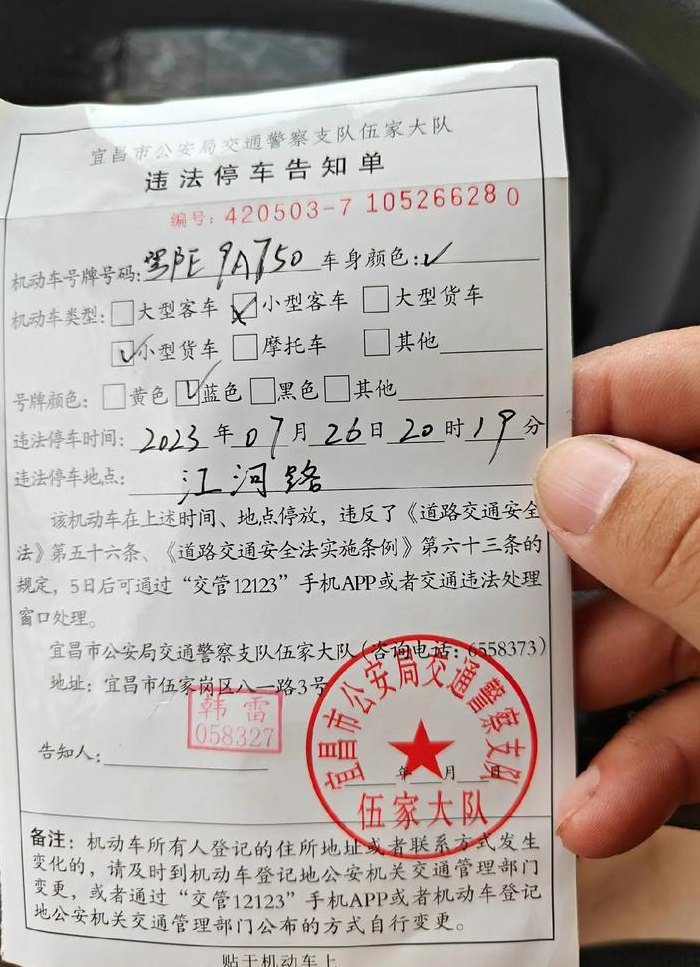 宜昌市公安局交通警察支队伍家大队
违法停车告知单
编号: 420503-7 105266280
机动车号牌号码: 9A750 车身颜色:✓
机动车类型: □大型客车 ☒小型客车 □大型货车
☑小型货车 □摩托车 □其他
号牌颜色: □黄色 ☑蓝色 □黑色 □其他
违法停车时间: 2023 年 07 月 26 日 20 时 19 分
违法停车地点: 江河路
该机动车在上述时间、地点停放，违反了《道路交通安全
法》第五十六条、《道路交通安全法实施条例》第六十三条的
规定，5日后可通过“交管12123”手机APP或者交通违法处理
窗口处理。
宜昌市公安局交通警察支队伍家大队(咨询电话: 6558373)
地址: 宜昌市伍家岗区八一路3号
韩雷
058327
告知人:
年 月 日
宜昌市公安局交通警察支队
伍家大队
备注: 机动车所有人登记的住所地址或者联系方式发生
变化的，请及时到机动车登记地公安机关交通管理部门
变更，或者通过“交管12123”手机APP或者机动车登记
地公安机关交通管理部门公布的方式自行变更。
贴于机动车上